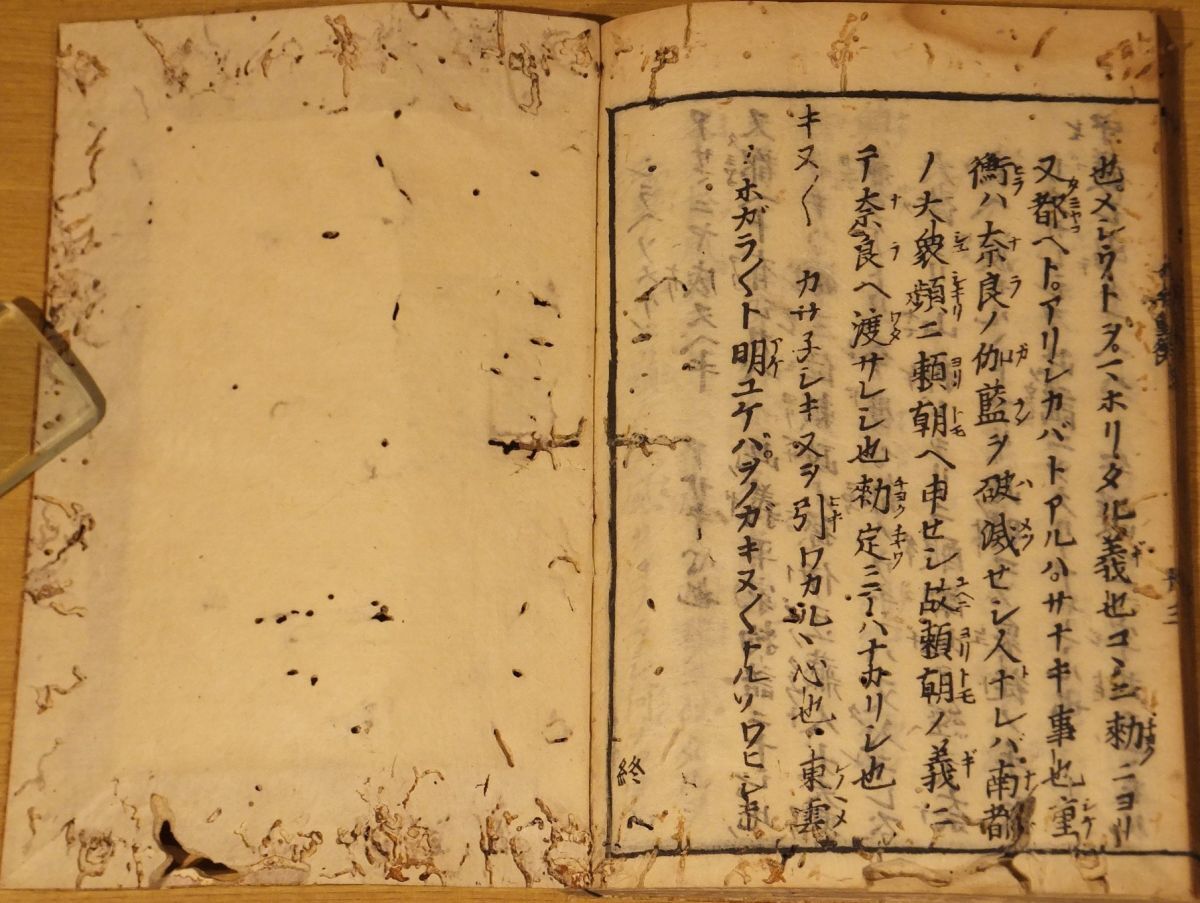 也メシウトヲ。マホリタル義也コヽニ勅ニヨリ
又都ヘト。アリシカバトアルハ。サナキ事也重
衡ハ奈良ノ伽藍ヲ破滅セシ人ナレバ南都
ノ大衆頻ニ頼朝ヘ申セシ故頼朝ノ義ニ
テ奈良ヘ渡サレシ也勅定ニテハナカリシ也
キヌ〱 カサ子シキヌヲ引ワカルヽ心也・東雲
ホガラ〱ト明ユケバ。ヲノガキヌ〱トルソワヒシキ
終